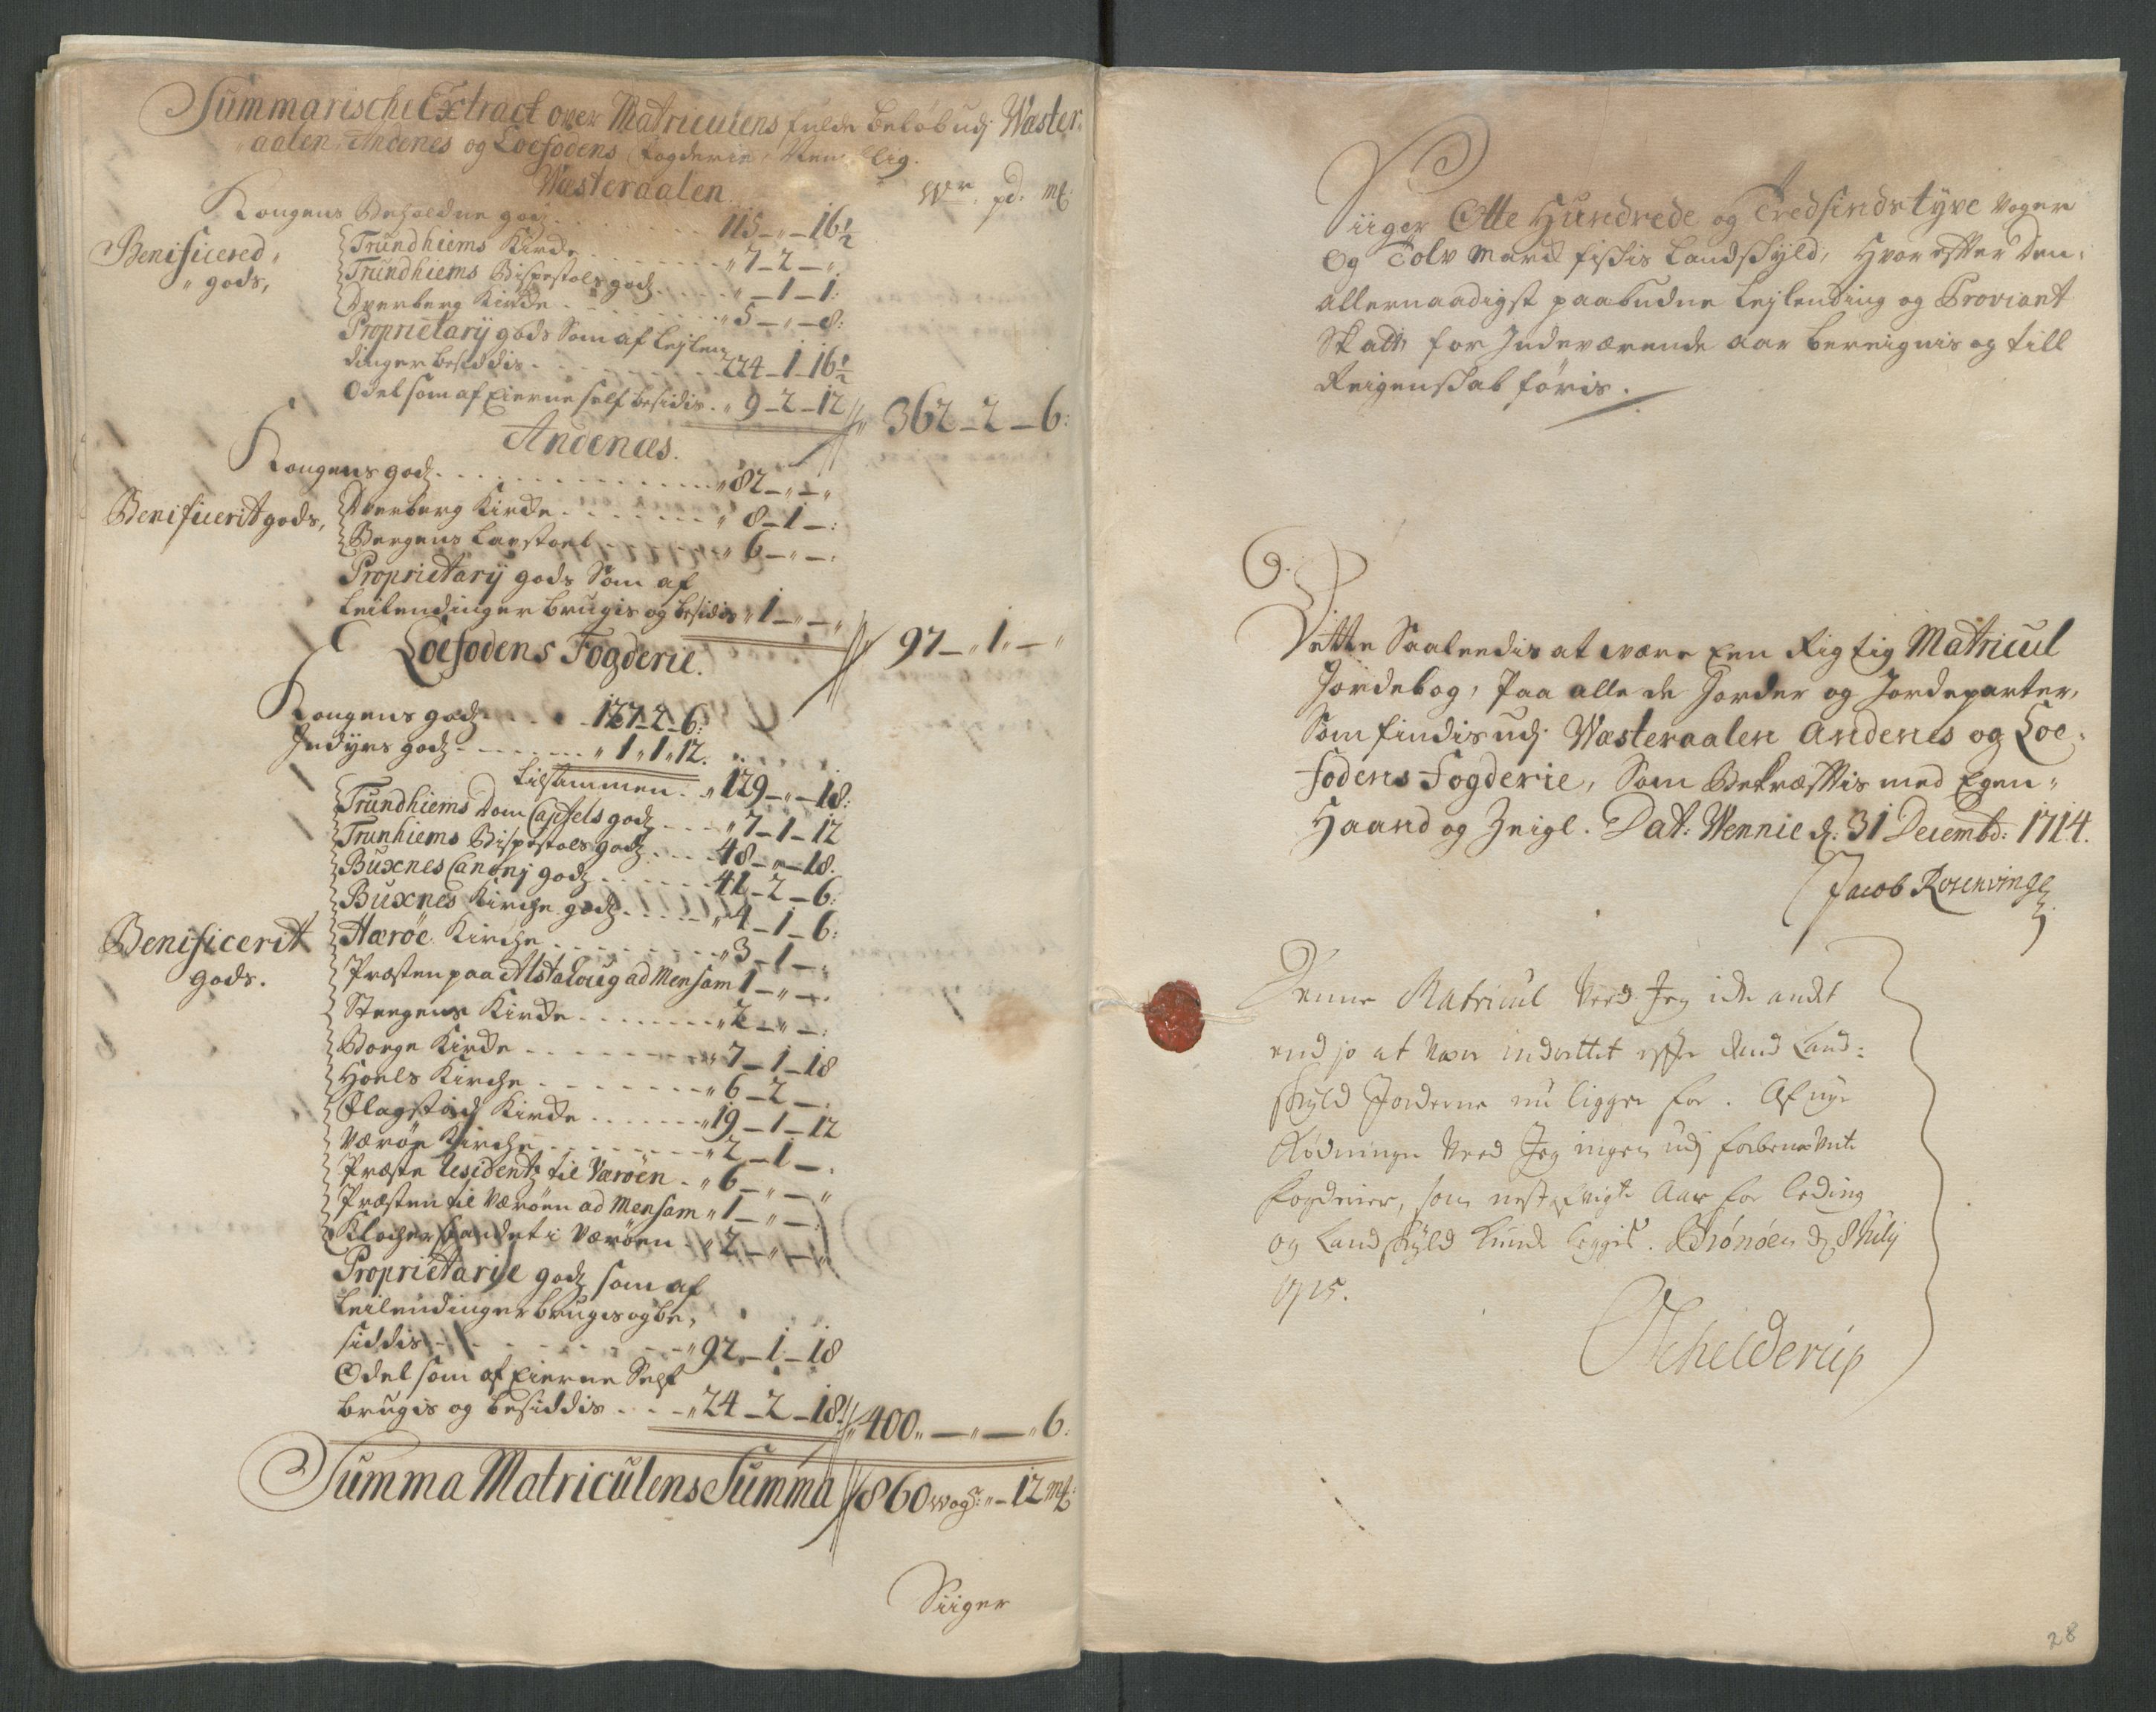 Summarische Extract over Matriculens fulde beløb udj Wæster¬
aalen, Andenes og Loefodens fogderie, Nemblig.
Wæsteraalen
Wr. pd. mk:
Kongens Beholdne godz . . . 115 - " - 16½
Benificered
gods,
Trundhiems Kirche . . . " 7 - 2 - "
Trundhiems Bispestols godz . . . " - 1 - 1:
Dverberg Kirche . . . " 5 - " - 8:
Proprietarij gods Som af Lejlen
dinger besiddis . . . 224 - 1 - 16½
Odel som af Eierne self besidis . " 9 - 2 - 12 // " 362 - 2 - 6:
Andenæs.
Kongens godz . . . " 82 - " - "
Benificerit gods,
Dverberg Kirche . . . " 8 - 1 - :
Bergens Laugstoel . . . " 6 - " - :
Proprietarij gods Som af
Leilendinger brugis og besidis " 1 - " - " // 97 - " 1 " - "
Loefodens Fogderie.
Kongens godz . . . 127 - 2 - 6:
Indyrs godz . . . " 1 " 1 " 12.
tilsammen . " 129 - " - 18:
Benificerit
gods.
Trundhiems Dom Capitels godz . . . " 7 - 1 - 12
Trunhiems Bispestoels godz . . . 48 - " - 18.
Buxnes Canonj godz . . . 41 - 2 - 6:
Buxnes Kirche godz . . . " 4 - 1 - 6:
Hærøe Kirche . . . " 3 - 1 - "
Præsten paa Alstahoug ad Mensam 1 - " - "
Steegens Kirche . . . " 2 - " - :
Borge Kirche . . . " 7 - 1 - 18
Hoels Kirche . . . " 6 - 2 - :
Flagstad Kirche . . . " 19 - 1 - 12
Værøe Kirche . . . " 2 - 1 - .
Præste Residentz til Værøen . " 6 - " - "
Præsten til Værøen ad Mensam " 1 - " - :
Klocher Landet i Værøen . " 2 - " - "
Proprietarije godz som af
Leilendinger brugis og be¬
siddis . . . " 92 - 1 - 18
Odel som af Eierne Self
brugis og besiddis . . . " 24 - 2 - 18 // " 400 " - " - " 6:
Summa Matriculens Summa // 860 wogr: " - 12 mk:
Siiger
Siiger Otte Hundrede og Tredsindstyve Voger
Og Tolv Marck fiskis Landskyld, Hvor efter Den
allernaadigst paabudne Lejlending og Proviant
Skatt for Indeværende aar bereignis og till
Reigenskab føris.
Dette Saaledis at være Een Rigtig Matricul
Jordebog, Paa alle de Jorder og Jordeparter,
Som findis udj Wæsteraalen Andenes og Loe¬
fodens Fogderie, Som Bekræftis med Egen
Haand og Zeigl. Dat: Wennie d: 31 Decembr: 1714.
Jacob Rosenvinge
Denne Matricul Veed Jeg icke andet
end jo at være indrettet efter dend Land¬
skyld Jorderne nu ligger for. Af nye
Rødninger Veed Jeg ingen udj forbenevnte
fogderier, som nest afvigte Aar for Leding
og Landskyld kunde legges. Brønøen d 8 July
1715.
Schielderup
28